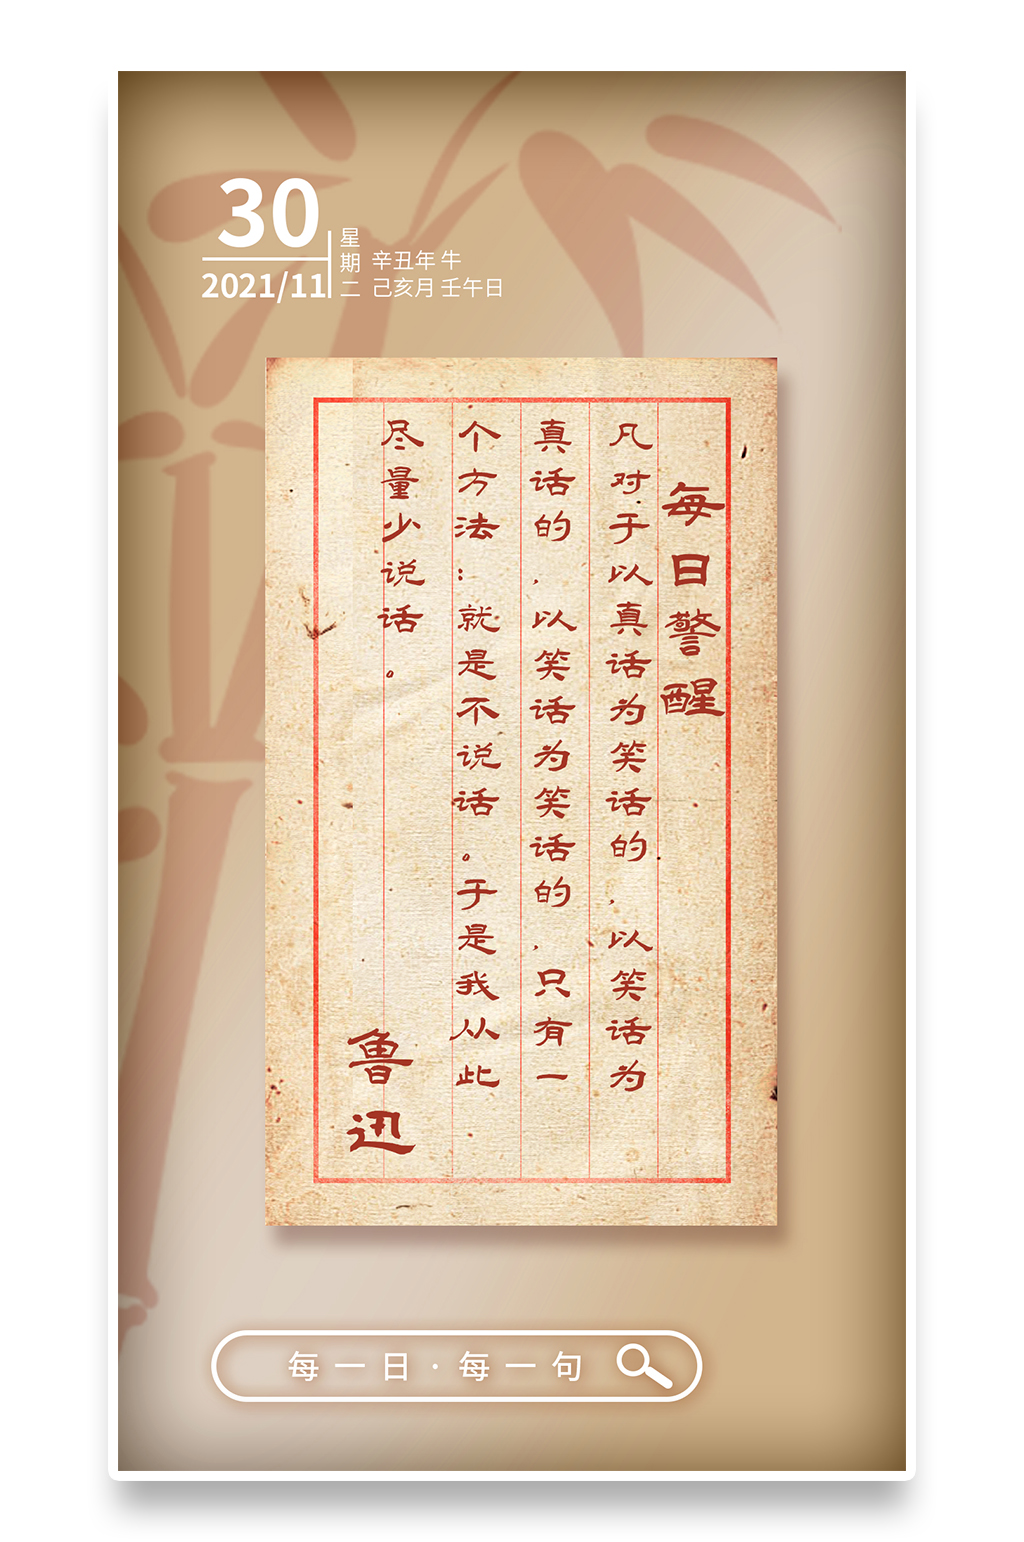 30
2021/11
星期二
辛丑年 牛
己亥月 壬午日
每日警醒
凡对于以真话为笑话的，以笑话为
真话的，以笑话为笑话的，只有一
个方法：就是不说话。于是我从此
尽量少说话。
鲁迅
每一日·每一句